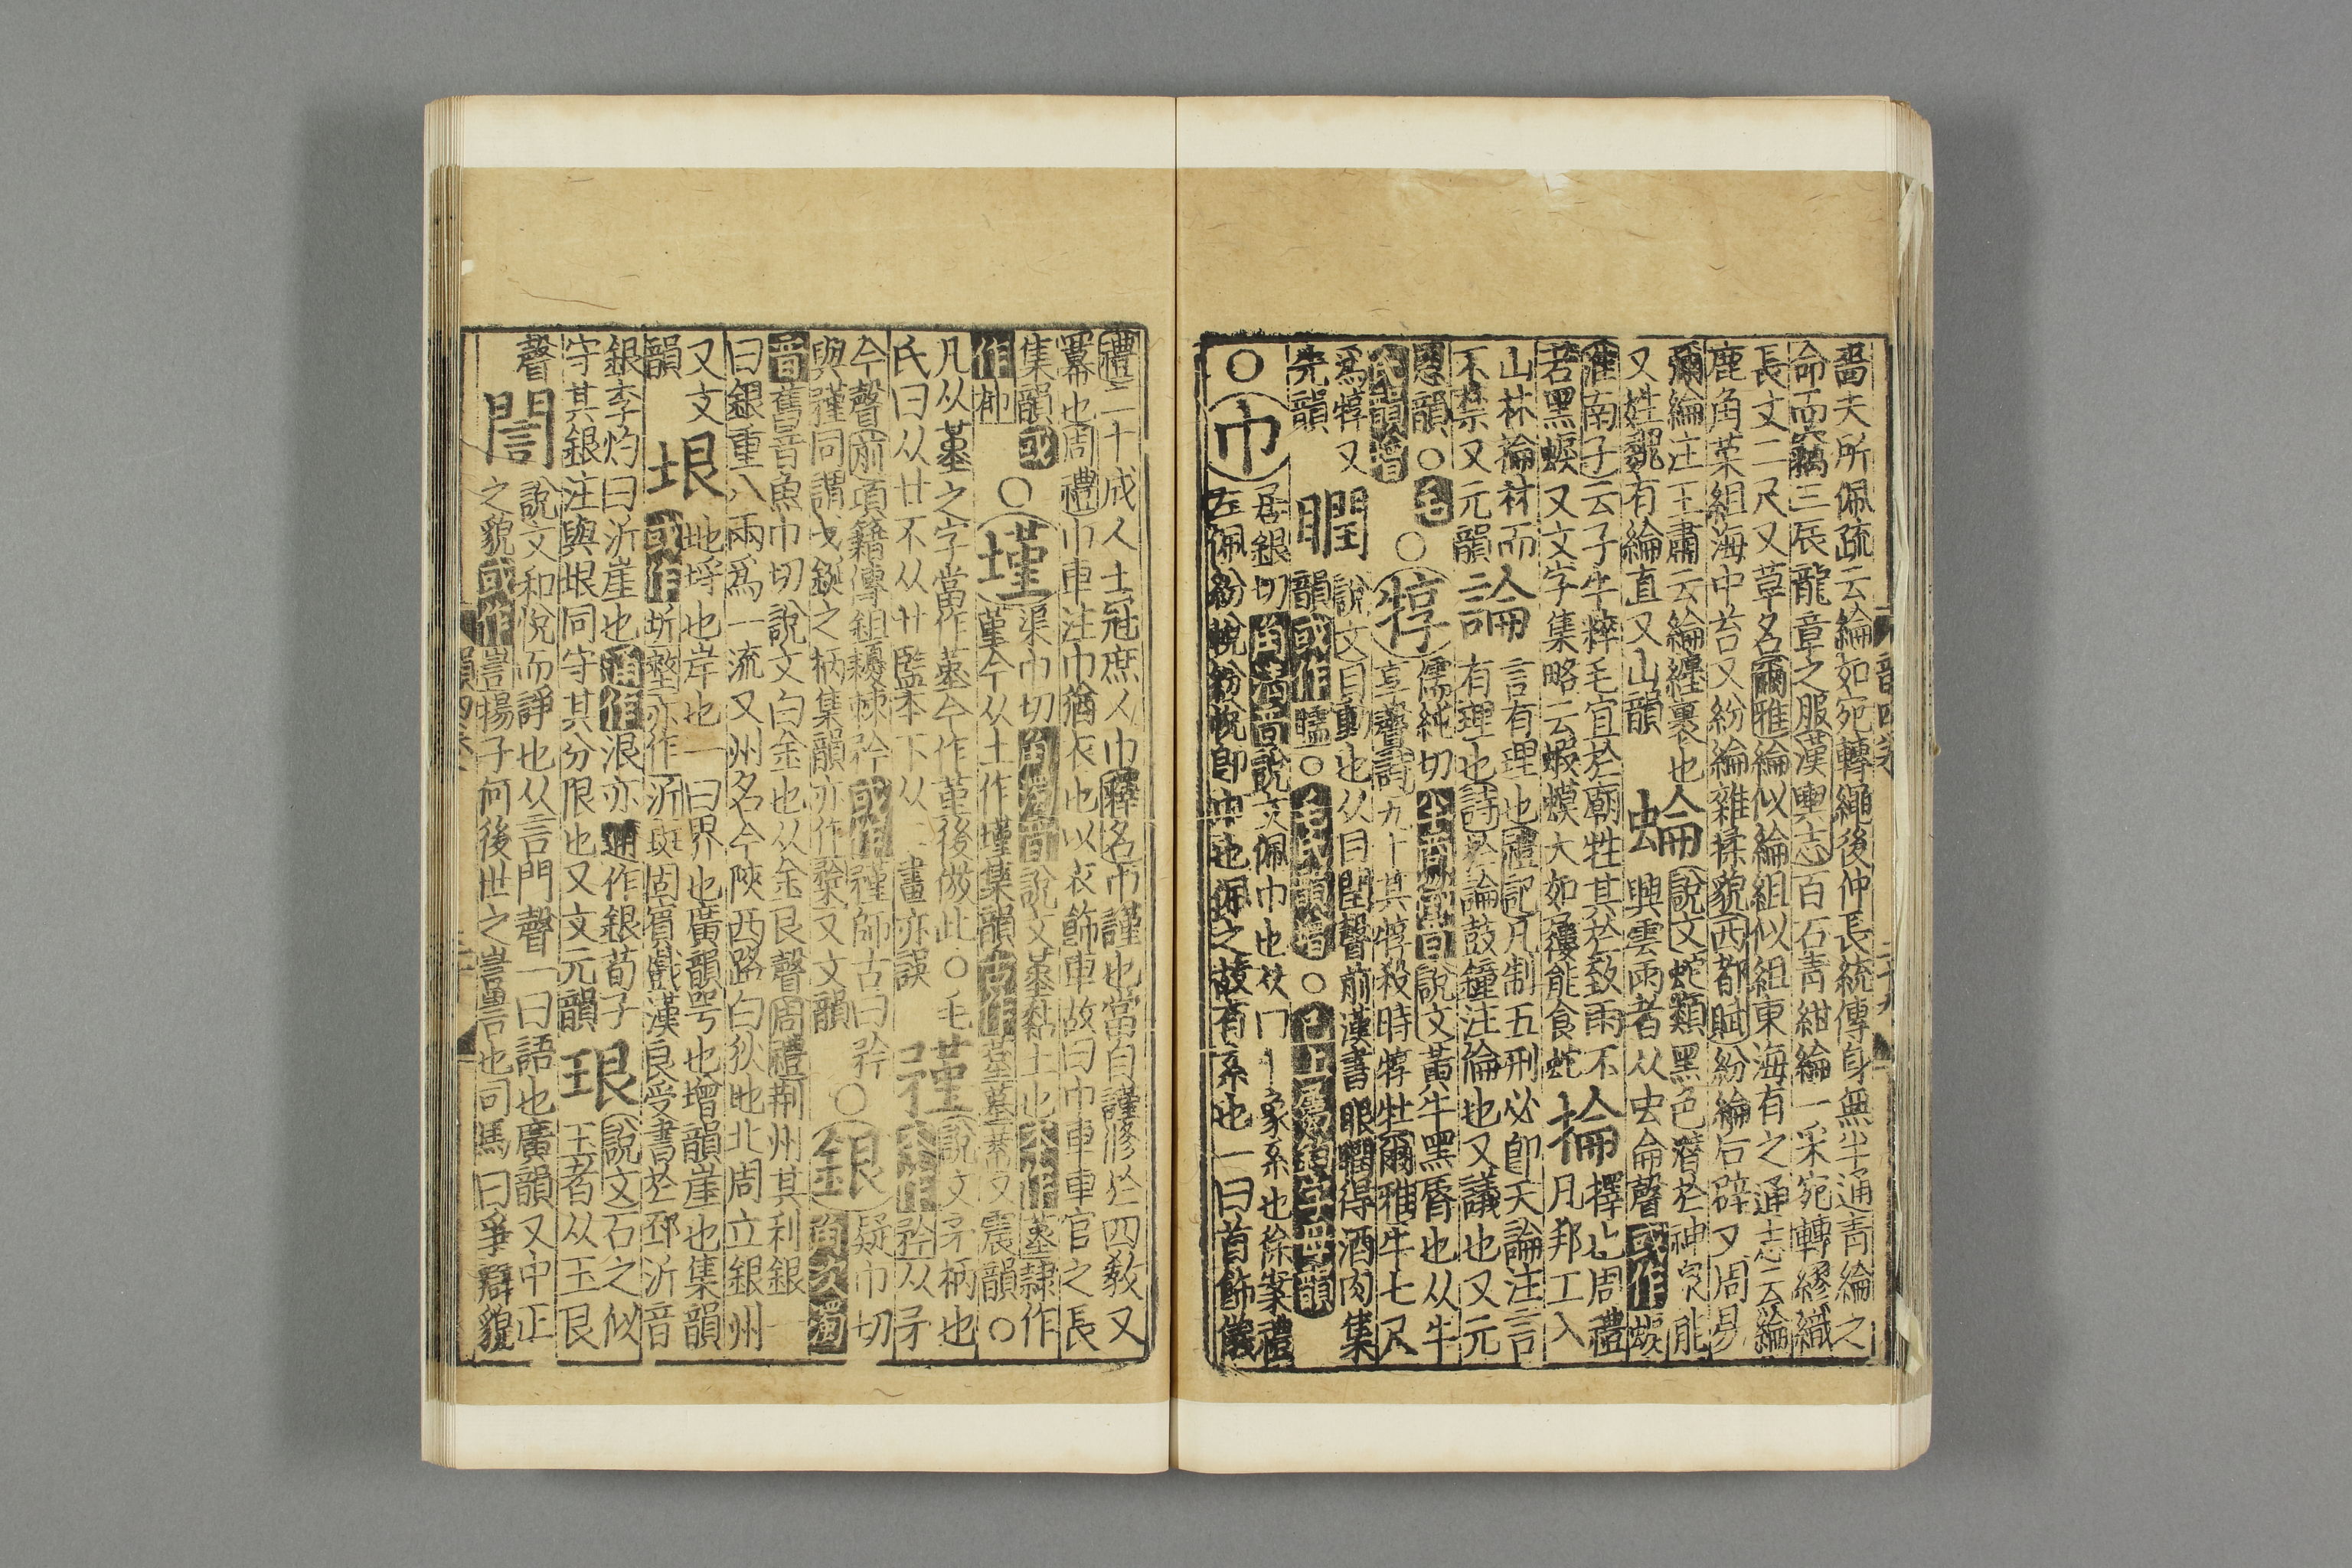 嗇夫所佩疏云綸如宛轉繩後仲長統傳身無半通青綸之
命而竊三辰龍章之服漢輿志百石青紺綸一采宛轉繆織
長丈二尺又草名爾雅綸似綸組似組東海有之通志云綸
鹿角菜組海中苔又紛綸雜揉貌西都賦紛綸后辟又周易
彌綸注王肅云綸纏裹也
又姓魏有綸直又山韻
蜦
說文蛇類黑色潛於神泉能
興雲雨者从虫侖聲或作蜧
淮南子云子牛粹毛宜於廟牲其於致雨不
若黑蜧又文字集略云蝦蟆大如屨能食蛇
掄
擇也周禮
凡邦工入
山林掄材而
不禁又元韻
論
言有理也禮記凡制五刑必即天論注言
有理也詩於論鼓鐘注倫也又議也又元
慁韻○毛
氏韻增
○犉
儒純切半商徵音說文黃牛黑脣也从牛
享聲詩九十其犉殺時犉牡爾雅牛七尺
爲犉又
先韻
瞤
說文目動也从目閏聲前漢書眼瞤得酒肉集
韻或作䏰○毛氏韻增○已上屬鈞字母韻
○巾
居銀切角清音說文佩巾也从冂丨象糸也徐案禮
左佩紛帨紛帨即巾也佩之故有系也一曰首飾儀
禮二十成人士冠庶人巾釋名巾謹也當自謹修於四教又
冪也周禮巾車注巾猶衣也以衣飾車故曰巾車車官之長
集韻或
作𢁥
○墐
渠巾切角濁音說文墓黏土也本作墓隸作
堇今从土作墐集韻古作墓墓又震韻○
凡从墓之字當作墓今作堇後倣此○毛
氏曰从廿不从廿監本下从畫亦誤
矜
說文矛柄也
本作矜从矛
今聲前項籍傳鉏耰棘矜或作𥎊師古曰矜
與𥎊同謂戈鋋之柄集韻亦作㯳又文韻
○銀
疑巾切
角次濁
音舊音魚巾切說文白金也从金艮聲周禮荆州其利銀一
曰銀重八兩爲一流又州名今陝西路白狄地北周立銀州
又文
韻
垠
地垺也岸也一曰界也廣韻咢也增韻崖也集韻
或作圻𡏢亦作沂班固賓戲漢良受書於邳沂音
銀李灼曰沂崖也通作浪亦通作銀荀子
守其銀注與垠同守其分限也又文元韻
珢
說文石之似
玉者从玉艮
聲
誾
說文和悅而諍也从言門聲一曰語也廣韻又中正
之貌或作訔揚子何後世之訔訔也司馬曰爭辯貌